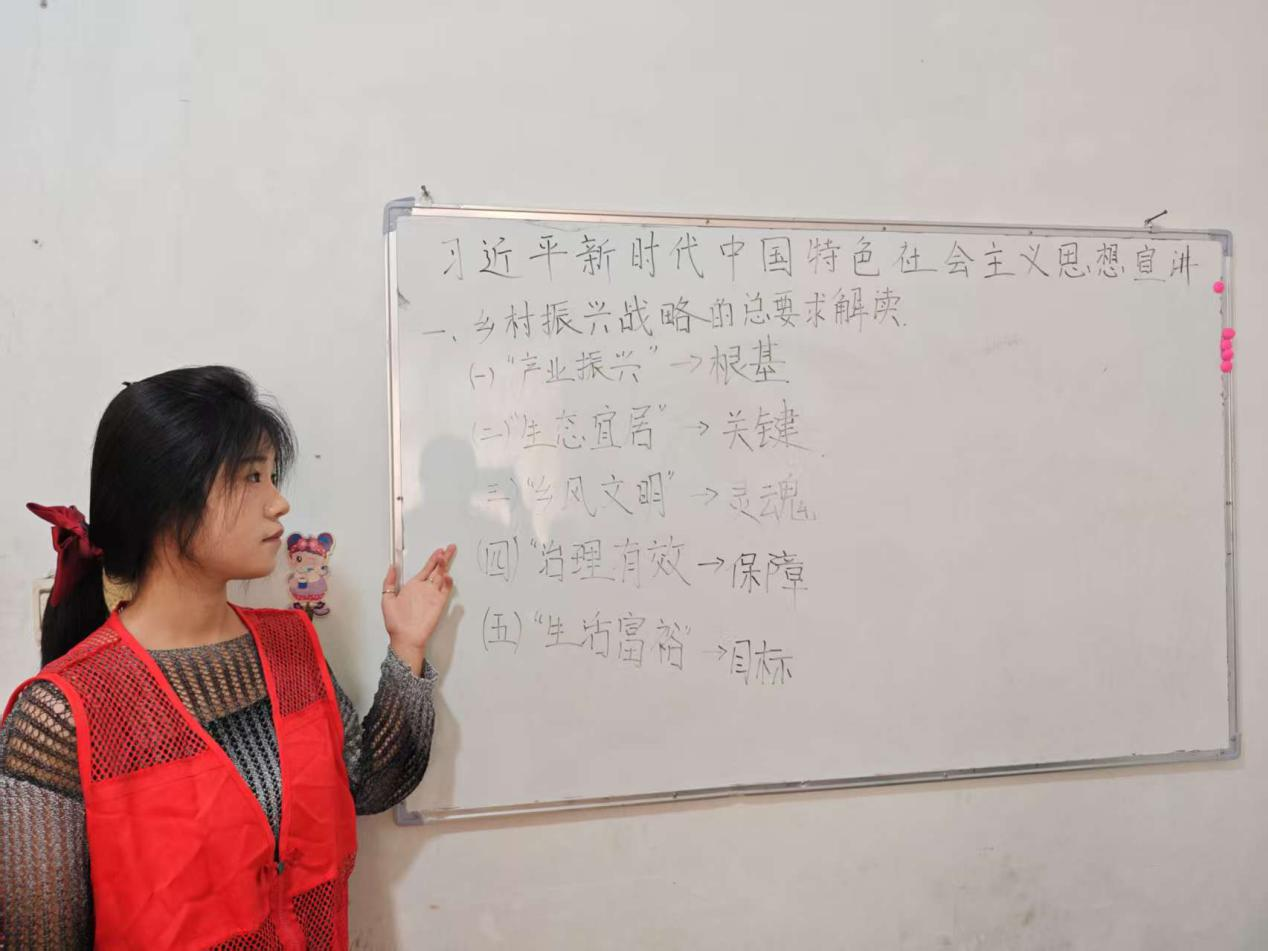 习近平新时代中国特色社会主义思想宣讲
一、乡村振兴战略的总要求解读.
(一)“产业振兴”→根基
(二)“生态宜居”→关键
(三)“乡风文明”→灵魂
(四)“治理有效→保障
(五)“生活富裕”→目标